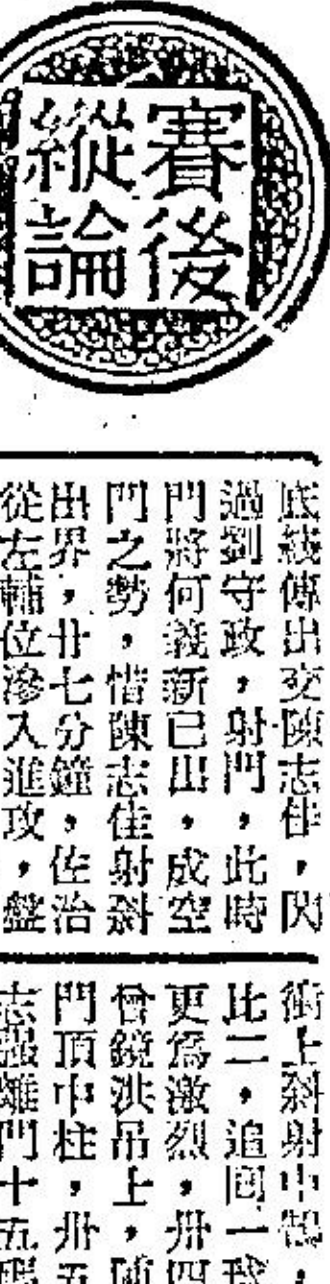 賽後
縱論
底綫傳出交陳志佳，閃
過劉守政，射門，此時
門將何義新已出，成空
門之勢，惜陳志佳射斜
出界，廿七分鐘，佐治
從左輔位滲入進攻，盤
衝上斜射中鵠，
比二，追回一球，
更為激烈，卅四
曾鏡洪吊上，隨
門頂中柱，卅五
志强離門十五碼